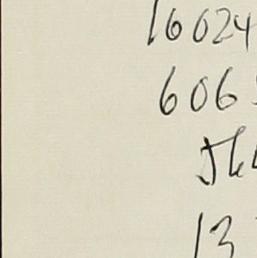 16024
606
13